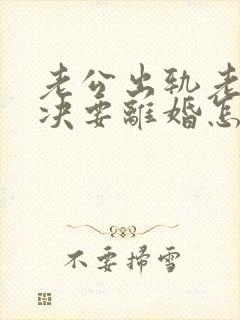 老公出轨老
决要離婚怎
不要掃雪